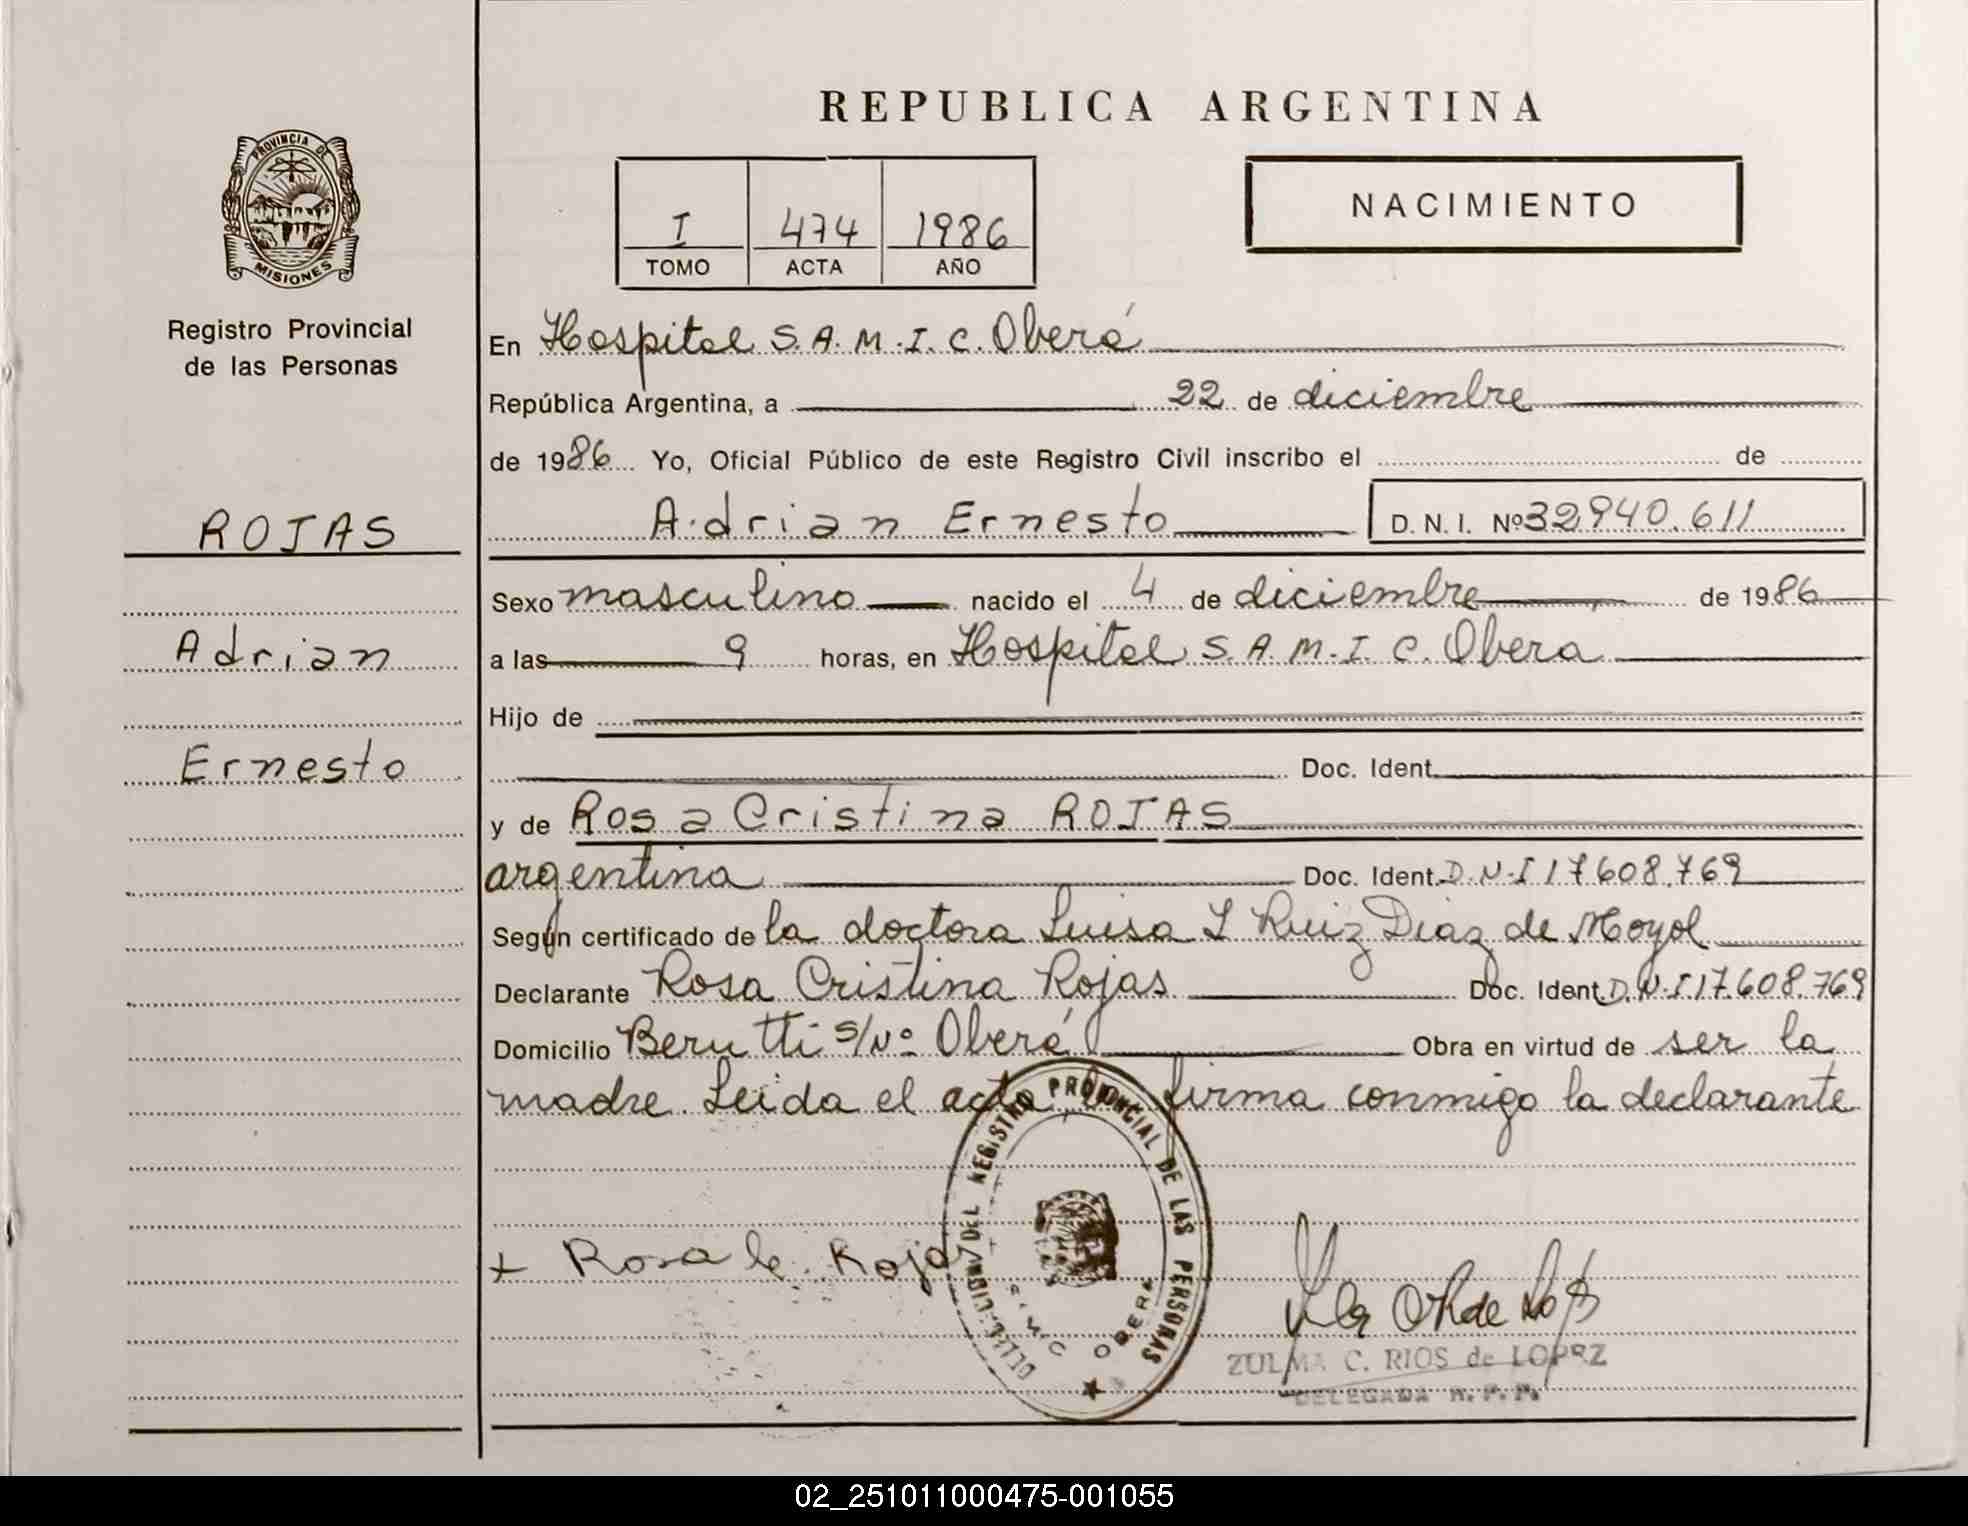 REPUBLICA ARGENTINA
PROVINCIA DE
MISIONES
Registro Provincial
de las Personas
ROJAS
Adrian
Ernesto
I 474 1986
TOMO ACTA AÑO
NACIMIENTO
En Hospital S.A.M.I.C. Oberá
República Argentina, a 22 de diciembre
de 1986 Yo, Oficial Público de este Registro Civil inscribo el de
Adrian Ernesto D.N.I. Nº 32940.611
Sexo masculino nacido el 4 de diciembre de 1986
a las 9 horas, en Hospital S.A.M.I.C. Obera
Hijo de
Doc. Ident.
y de Rosa Cristina ROJAS
argentina Doc. Ident. D.N.I 17608.769
Según certificado de la doctora Luisa L Ruiz Diaz de Moyol
Declarante Rosa Cristina Rojas Doc. Ident. D.N.I 17.608.769
Domicilio Berutti s/Nº Oberá Obra en virtud de ser la
madre. Leida el acta firma conmigo la declarante
+ Rosa C. Rojas
DEL REGISTRO PROVINCIAL DE LAS PERSONAS
OBERA
ZULMA C. RIOS de LOPEZ
DELEGADA R.P.P.
02_251011000475-001055